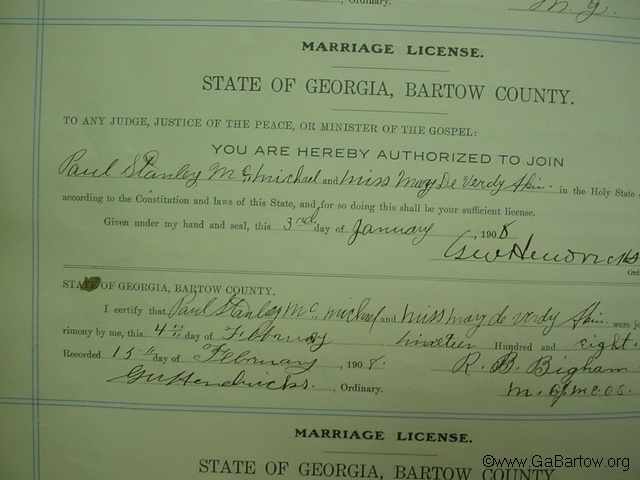 , Ordinary.
M. G.
MARRIAGE LICENSE.
STATE OF GEORGIA, BARTOW COUNTY.
TO ANY JUDGE, JUSTICE OF THE PEACE, OR MINISTER OF THE GOSPEL:
YOU ARE HEREBY AUTHORIZED TO JOIN
Paul Stanley McMichael and Miss May De Verdy Akin in the Holy State
according to the Constitution and laws of this State, and for so doing this shall be your sufficient license.
Given under my hand and seal, this 3rd day of January, 1908
GW Hendricks
Ord
STATE OF GEORGIA, BARTOW COUNTY.
I certify that Paul Stanley McMichael and Miss May de Verdy Akin were jo
rimony by me, this 4th day of February Nineteen Hundred and eight.
Recorded 15th day of February, 1908. R. B. Bigham
GW Hendricks, Ordinary. M. G. M. E. C. S.
MARRIAGE LICENSE.
STATE OF GEORGIA, BARTOW COUNTY
©www.GaBartow.org